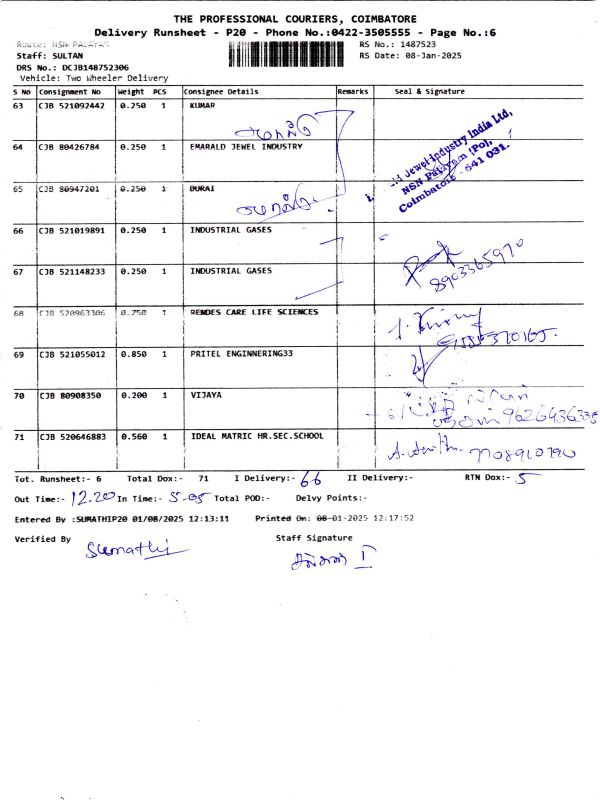 THE PROFESSIONAL COURIERS, COIMBATORE
Delivery Runsheet - P20 - Phone No.:0422-3505555 - Page No.:6
Route: NSN PALAYAM
RS No.: 1487523
Staff: SULTAN
RS Date: 08-Jan-2025
DRS No.: DCJB148752306
Vehicle: Two Wheeler Delivery
S No Consignment No Weight PCS Consignee Details Remarks Seal & Signature
63 CJB 521092442 0.250 1 KUMAR
64 CJB 80426784 0.250 1 EMARALD JEWEL INDUSTRY
Jewel Industry India Ltd,
NSN Palayam (Po),
Coimbatore - 641 031.
65 CJB 80947201 0.250 1 DURAI
66 CJB 521019891 0.250 1 INDUSTRIAL GASES
67 CJB 521148233 0.250 1 INDUSTRIAL GASES
8903365970
68 CJB 520963306 0.750 1 RENDES CARE LIFE SCIENCES
69 CJB 521055012 0.850 1 PRITEL ENGINNERING33
70 CJB 80908350 0.200 1 VIJAYA
71 CJB 520646883 0.560 1 IDEAL MATRIC HR.SEC.SCHOOL
7708910790
Tot. Runsheet:- 6 Total Dox:- 71 I Delivery:- 66 II Delivery:- RTN Dox:- 5
Out Time:- 12.20 In Time:- 5.05 Total POD:- Delvy Points:-
Entered By :SUMATHIP20 01/08/2025 12:13:11 Printed On: 08-01-2025 12:17:52
Verified By Sumathi Staff Signature